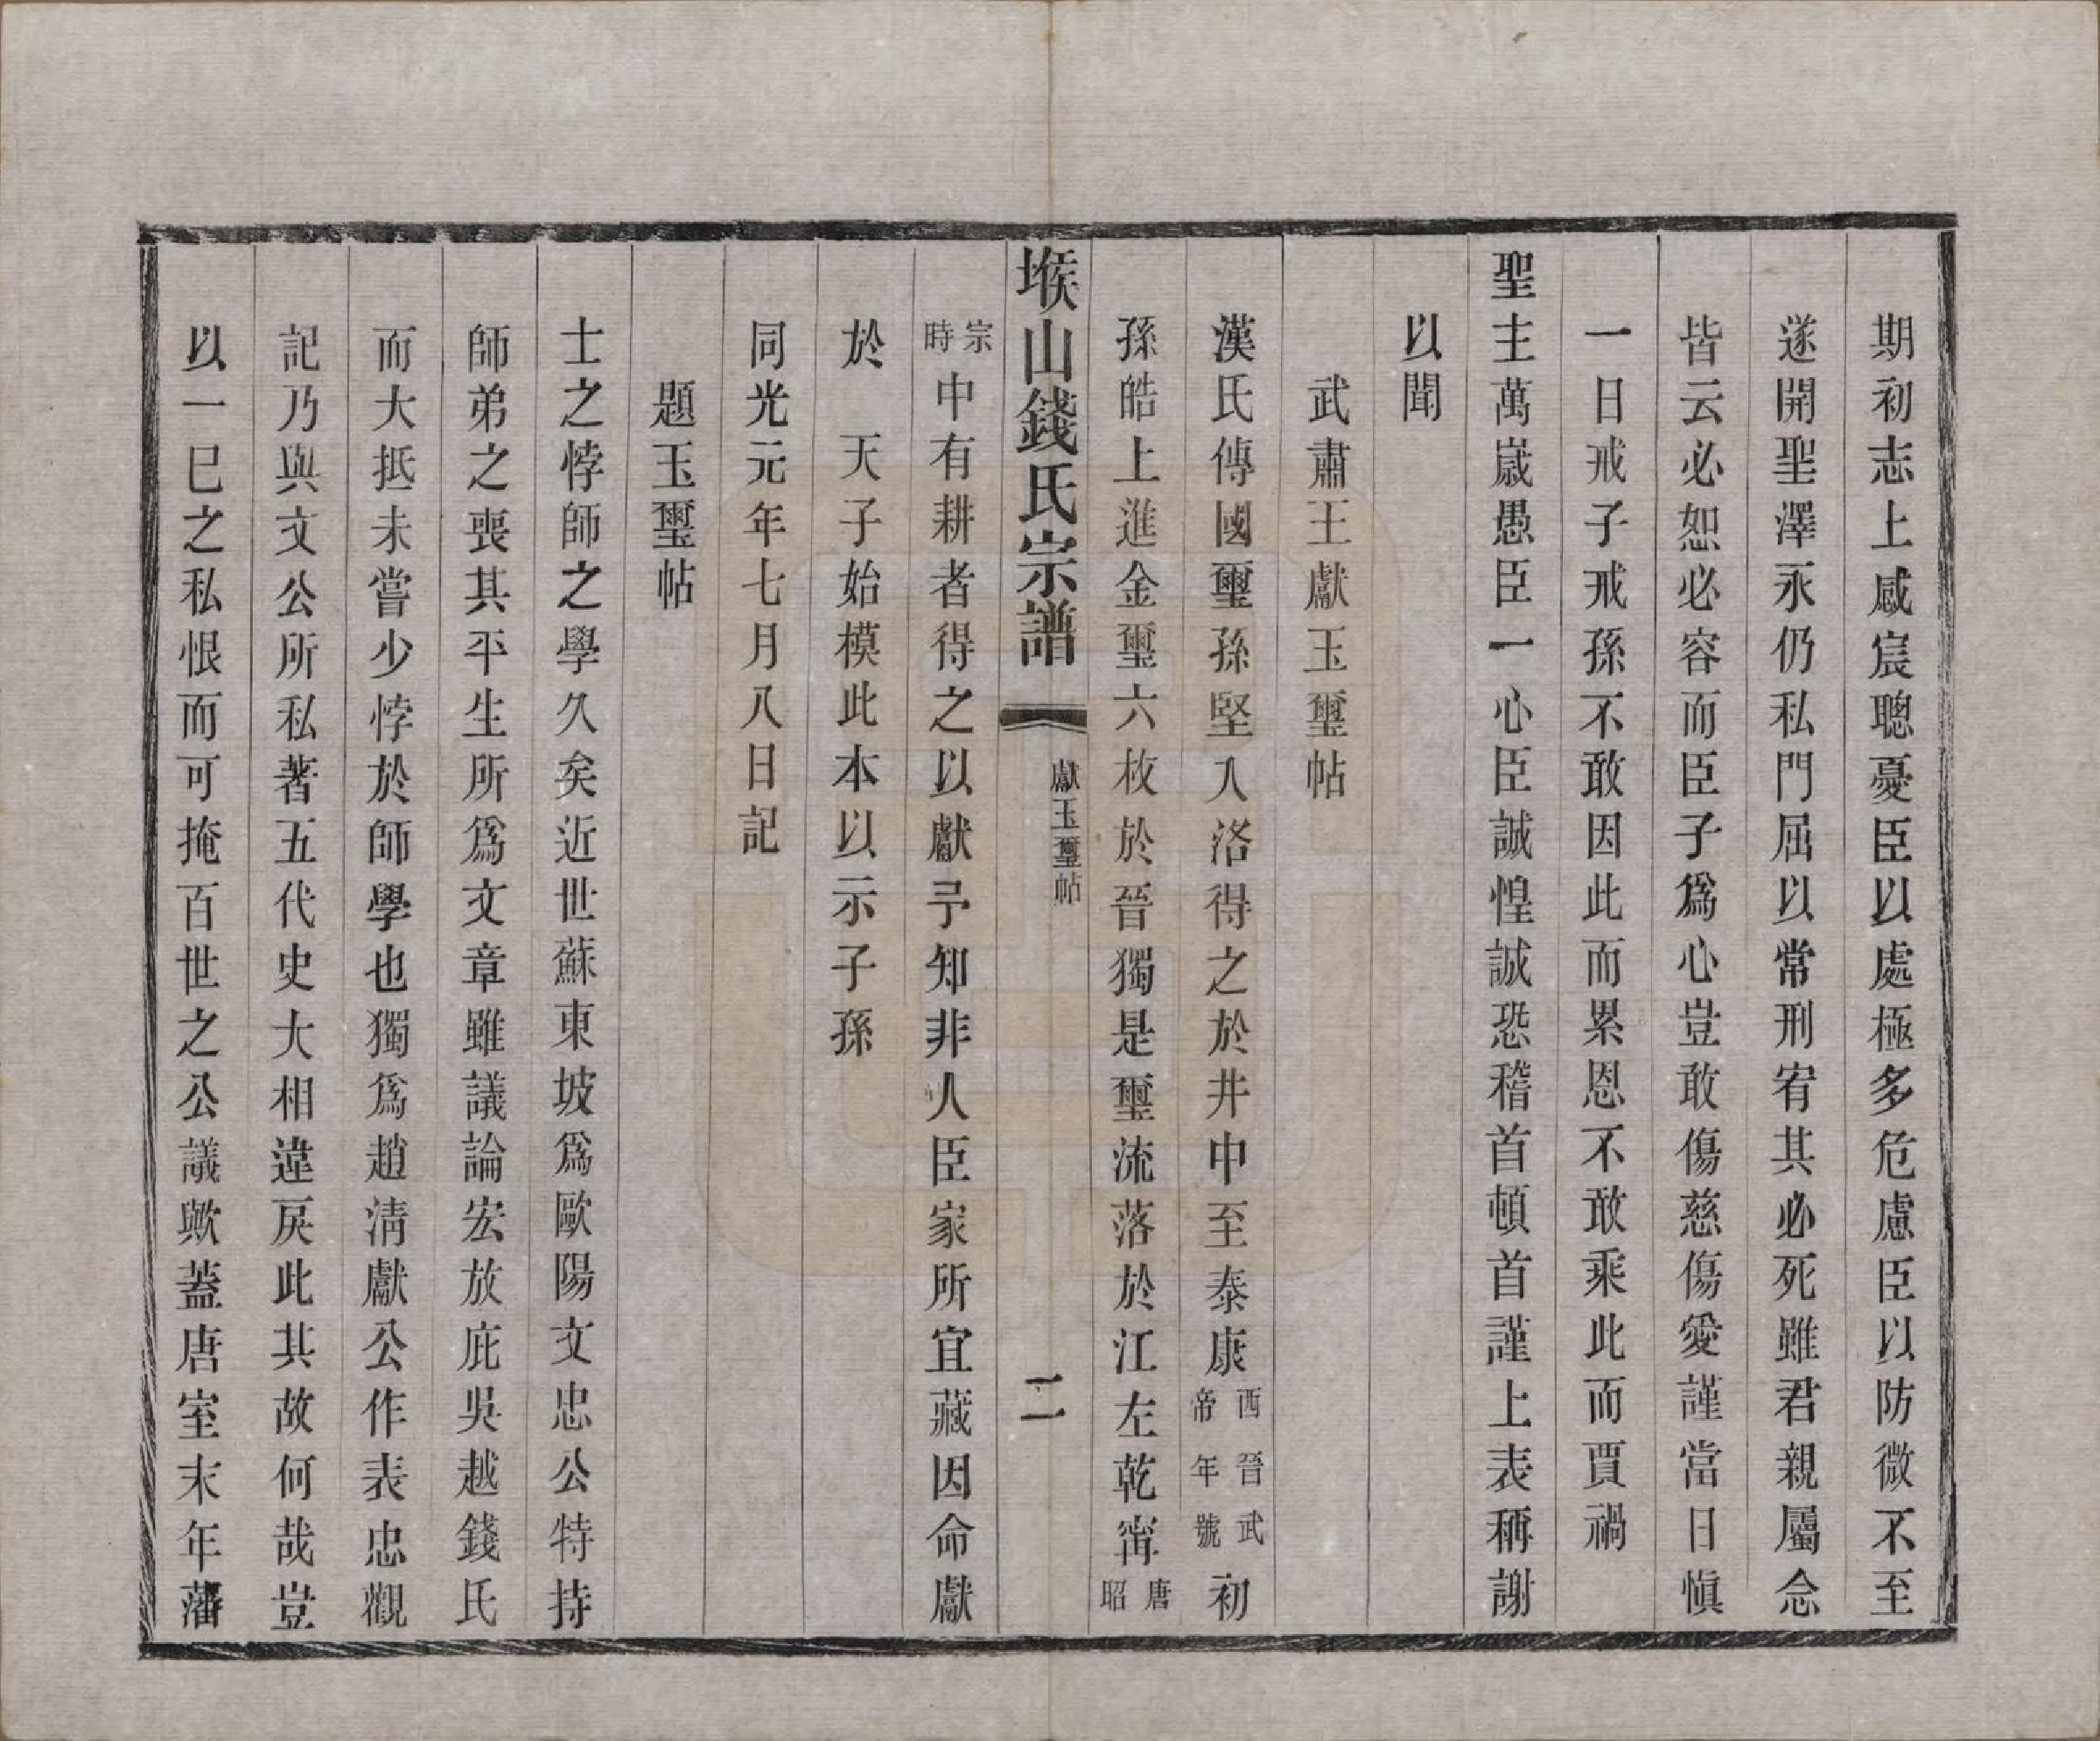 期初志上感宸聰憂臣以處極多危慮臣以防微不至
遂開聖澤永仍私門屈以常刑宥其必死雖君親屬念
皆云必恕必容而臣子爲心豈敢傷慈傷愛謹當日愼
一日戒子戒孫不敢因此而累恩不敢乘此而賈禍
聖主萬歲愚臣一心臣誠惶誠恐稽首頓首謹上表稱謝
以聞
武肅王獻玉璽帖
漢氏傳國璽孫堅入洛得之於井中至泰康西晉武帝年號初
孫皓上進金璽六枚於晉獨是璽流落於江左乾甯唐昭
堠山錢氏宗譜 獻玉璽帖 二
宗時中有耕者得之以獻予知非人臣家所宜藏因命獻
於 天子始模此本以示子孫
同光元年七月八日記
題玉璽帖
士之悖師之學久矣近世蘇東坡爲歐陽文忠公特持
師弟之喪其平生所爲文章雖議論宏放庇吳越錢氏
而大抵未嘗少悖於師學也獨爲趙淸獻公作表忠觀
記乃與文公所私著五代史大相違戾此其故何哉豈
以一巳之私恨而可掩百世之公議歟蓋唐室末年藩